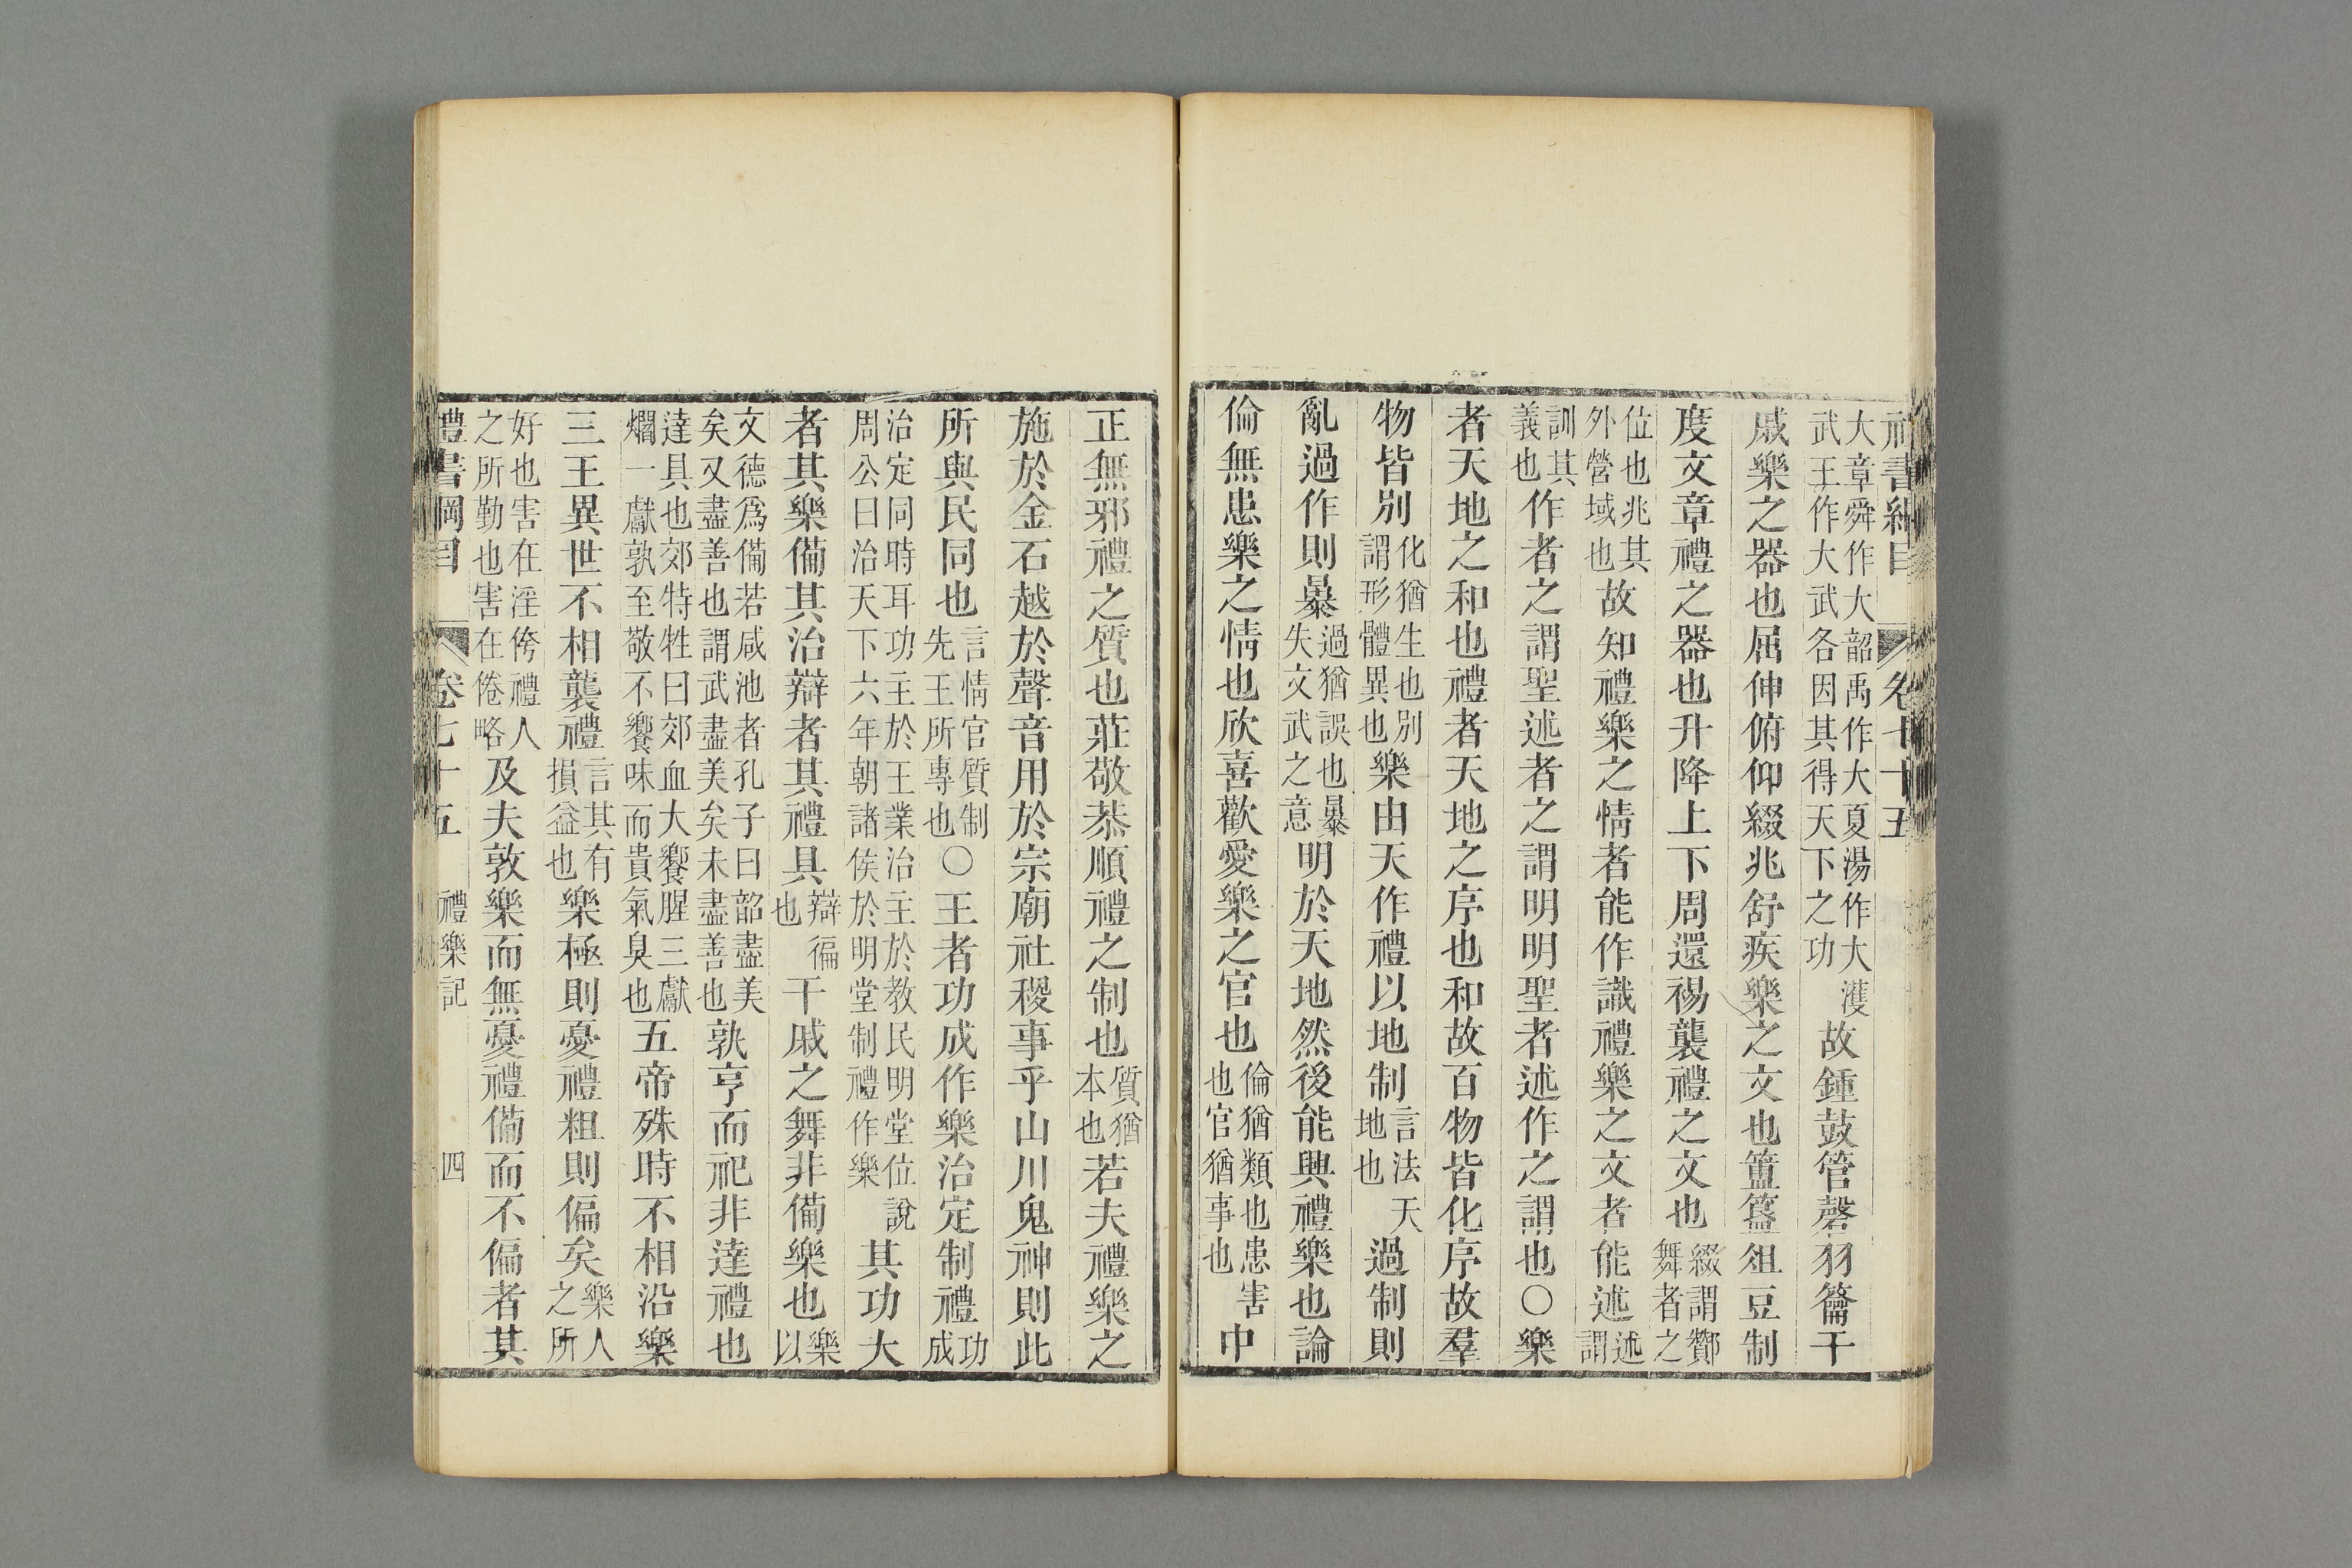 大章舜作大韶禹作大夏湯作大濩
武王作大武各因其得天下之功
故鍾鼓管磬羽籥干
戚樂之器也屈伸俯仰綴兆舒疾樂之文也簠簋俎豆制
度文章禮之器也升降上下周還裼襲禮之文也
綴謂酇
舞者之
位也兆其
外營域也
故知禮樂之情者能作識禮樂之文者能述
述
謂
訓其
義也
作者之謂聖述者之謂明明聖者述作之謂也〇樂
者天地之和也禮者天地之序也和故百物皆化序故羣
物皆別
化猶生也別
謂形體異也
樂由天作禮以地制
言法天
地也
過制則
亂過作則暴
過猶誤也暴
失文武之意
明於天地然後能興禮樂也論
倫無患樂之情也欣喜歡愛樂之官也
倫猶類也患害
也官猶事也
中
正無邪禮之質也莊敬恭順禮之制也
質猶
本也
若夫禮樂之
施於金石越於聲音用於宗廟社稷事乎山川鬼神則此
所與民同也
言情官質制
先王所專也
〇王者功成作樂治定制禮
功
成
治定同時耳功主於王業治主於教民明堂位說
周公曰治天下六年朝諸侯於明堂制禮作樂
其功大
者其樂備其治辯者其禮具
辯徧
也
干戚之舞非備樂也
樂
以
文德爲備若咸池者孔子曰韶盡美
矣又盡善也謂武盡美矣未盡善也
孰亨而祀非達禮也
達具也郊特牲曰郊血大饗腥三獻
爓一獻孰至敬不饗味而貴氣臭也
五帝殊時不相沿樂
三王異世不相襲禮
言其有
損益也
樂極則憂禮粗則偏矣
樂人
之所
好也害在淫侉禮人
之所勤也害在倦略
及夫敦樂而無憂禮備而不偏者其
禮書綱目
卷七十五
禮樂記
四